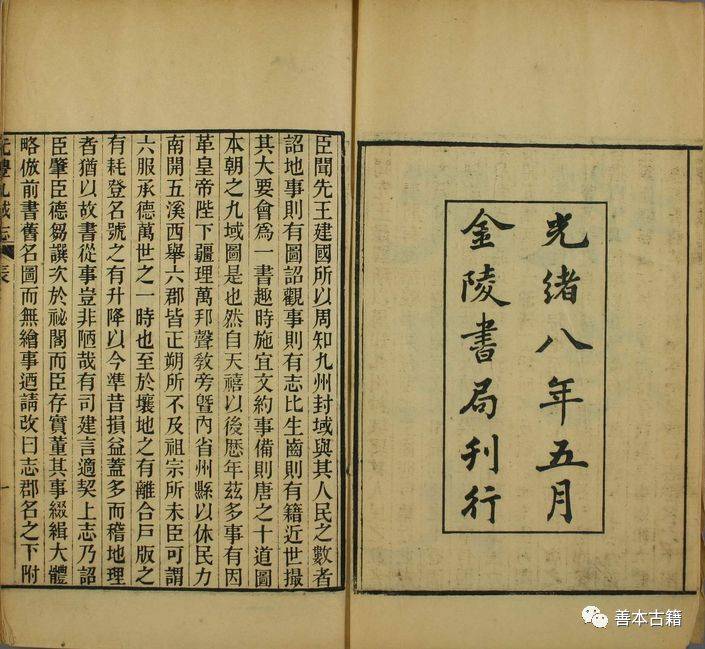 光緒八年五月
金陵書局刊行
臣聞先王建國所以周知九州封域與其人民之數者
詔地事則有圖詔觀事則有志比生齒則有籍近世撮
其大要會爲一書趣時施宜文約事備則唐之十道圖
本朝之九域圖是也然自天禧以後歷年茲多事有因
革皇帝陛下疆理萬邦聲敎旁曁內省州縣以休民力
南開五溪西舉六郡皆正朔所不及祖宗所未臣可謂
六服承德萬世之一時也至於壤地之有離合戸版之
有耗登名號之有升降以今準昔損益蓋多而稽地理
者猶以故書從事豈非陋哉有司建言適契上志乃詔
臣肇臣德芻譔次於祕閣而臣存實董其事綴緝大體
略倣前書舊名圖而無繪事迺請改曰志郡名之下附
元豐九域志 表 一
善本古籍